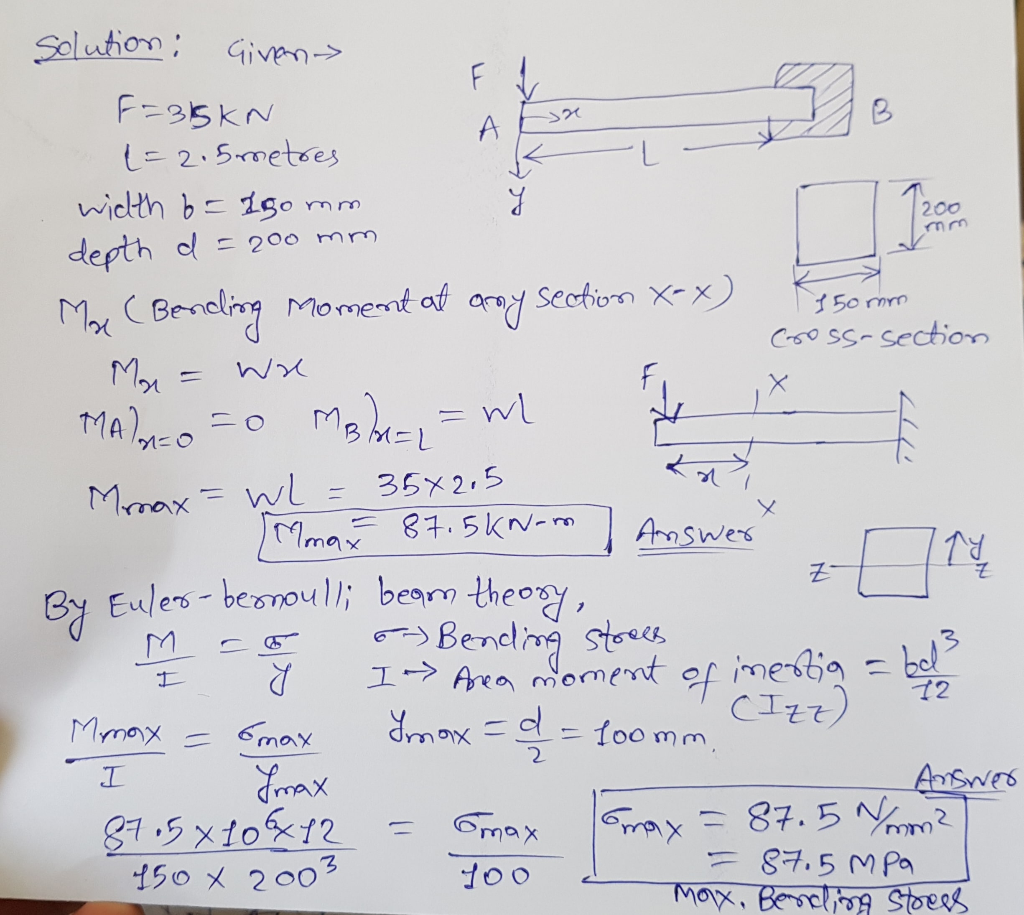 Solution: Given→
F=35KN
l= 2.5metres
width b= 150 mm
depth d = 200 mm
F
A
x
B
L
y
200
mm
150mm
Cross-section
Mx (Bending Moment at any section X-X)
Mx = Wx
MA)x=0 =0 MB)x=l = wl
F
X
x
X
Mmax = wl = 35×2.5
Mmax = 87.5KN-m Answer
z y z
By Euler-bernoulli beam theory,
M/I = σ/y σ→Bending stress
I→ Area moment of inertia = bd³/12
(Izz)
Mmax/I = σmax/ymax ymax = d/2 = 100mm.
Answer
87.5×10⁶×12/150×200³ = σmax/100
σmax = 87.5 N/mm²
= 87.5 MPa
Max. Bending stress